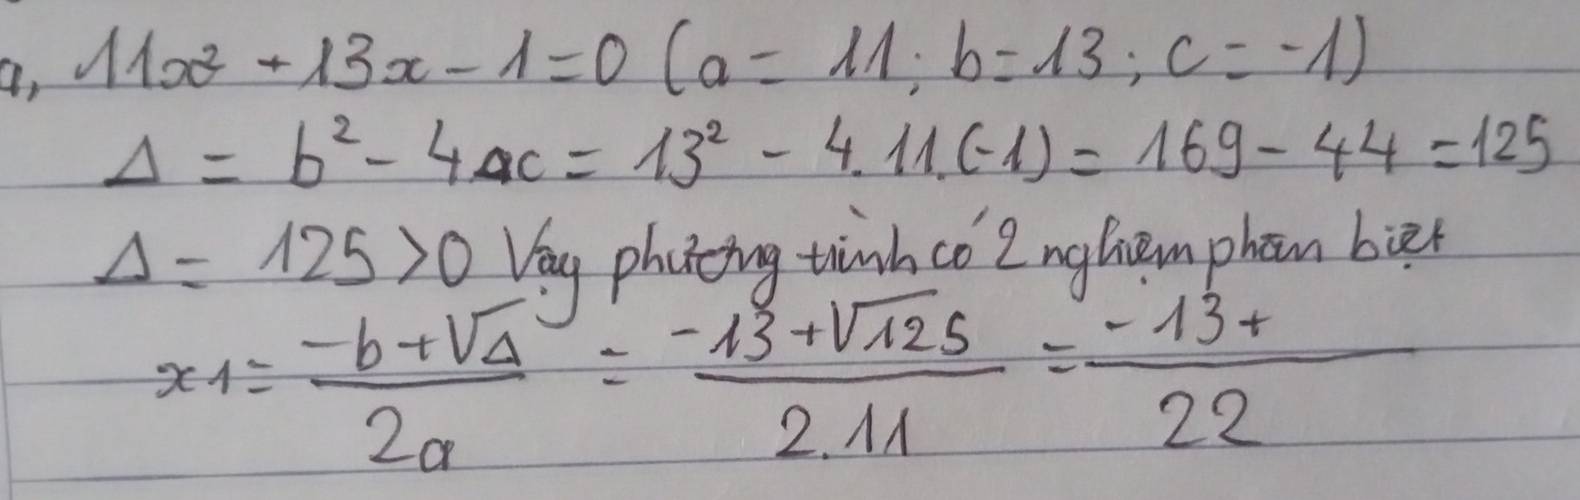 a, 11x² + 13x - 1 = 0 (a = 11; b = 13; c = -1)
Δ = b² - 4ac = 13² - 4.11.(-1) = 169 - 44 = 125
Δ = 125 > 0 Vậy phương trình có 2 nghiệm phân biệt
x1 = (-b + √Δ)/(2a) = (-13 + √125)/(2.11) = (-13 + )/(22)